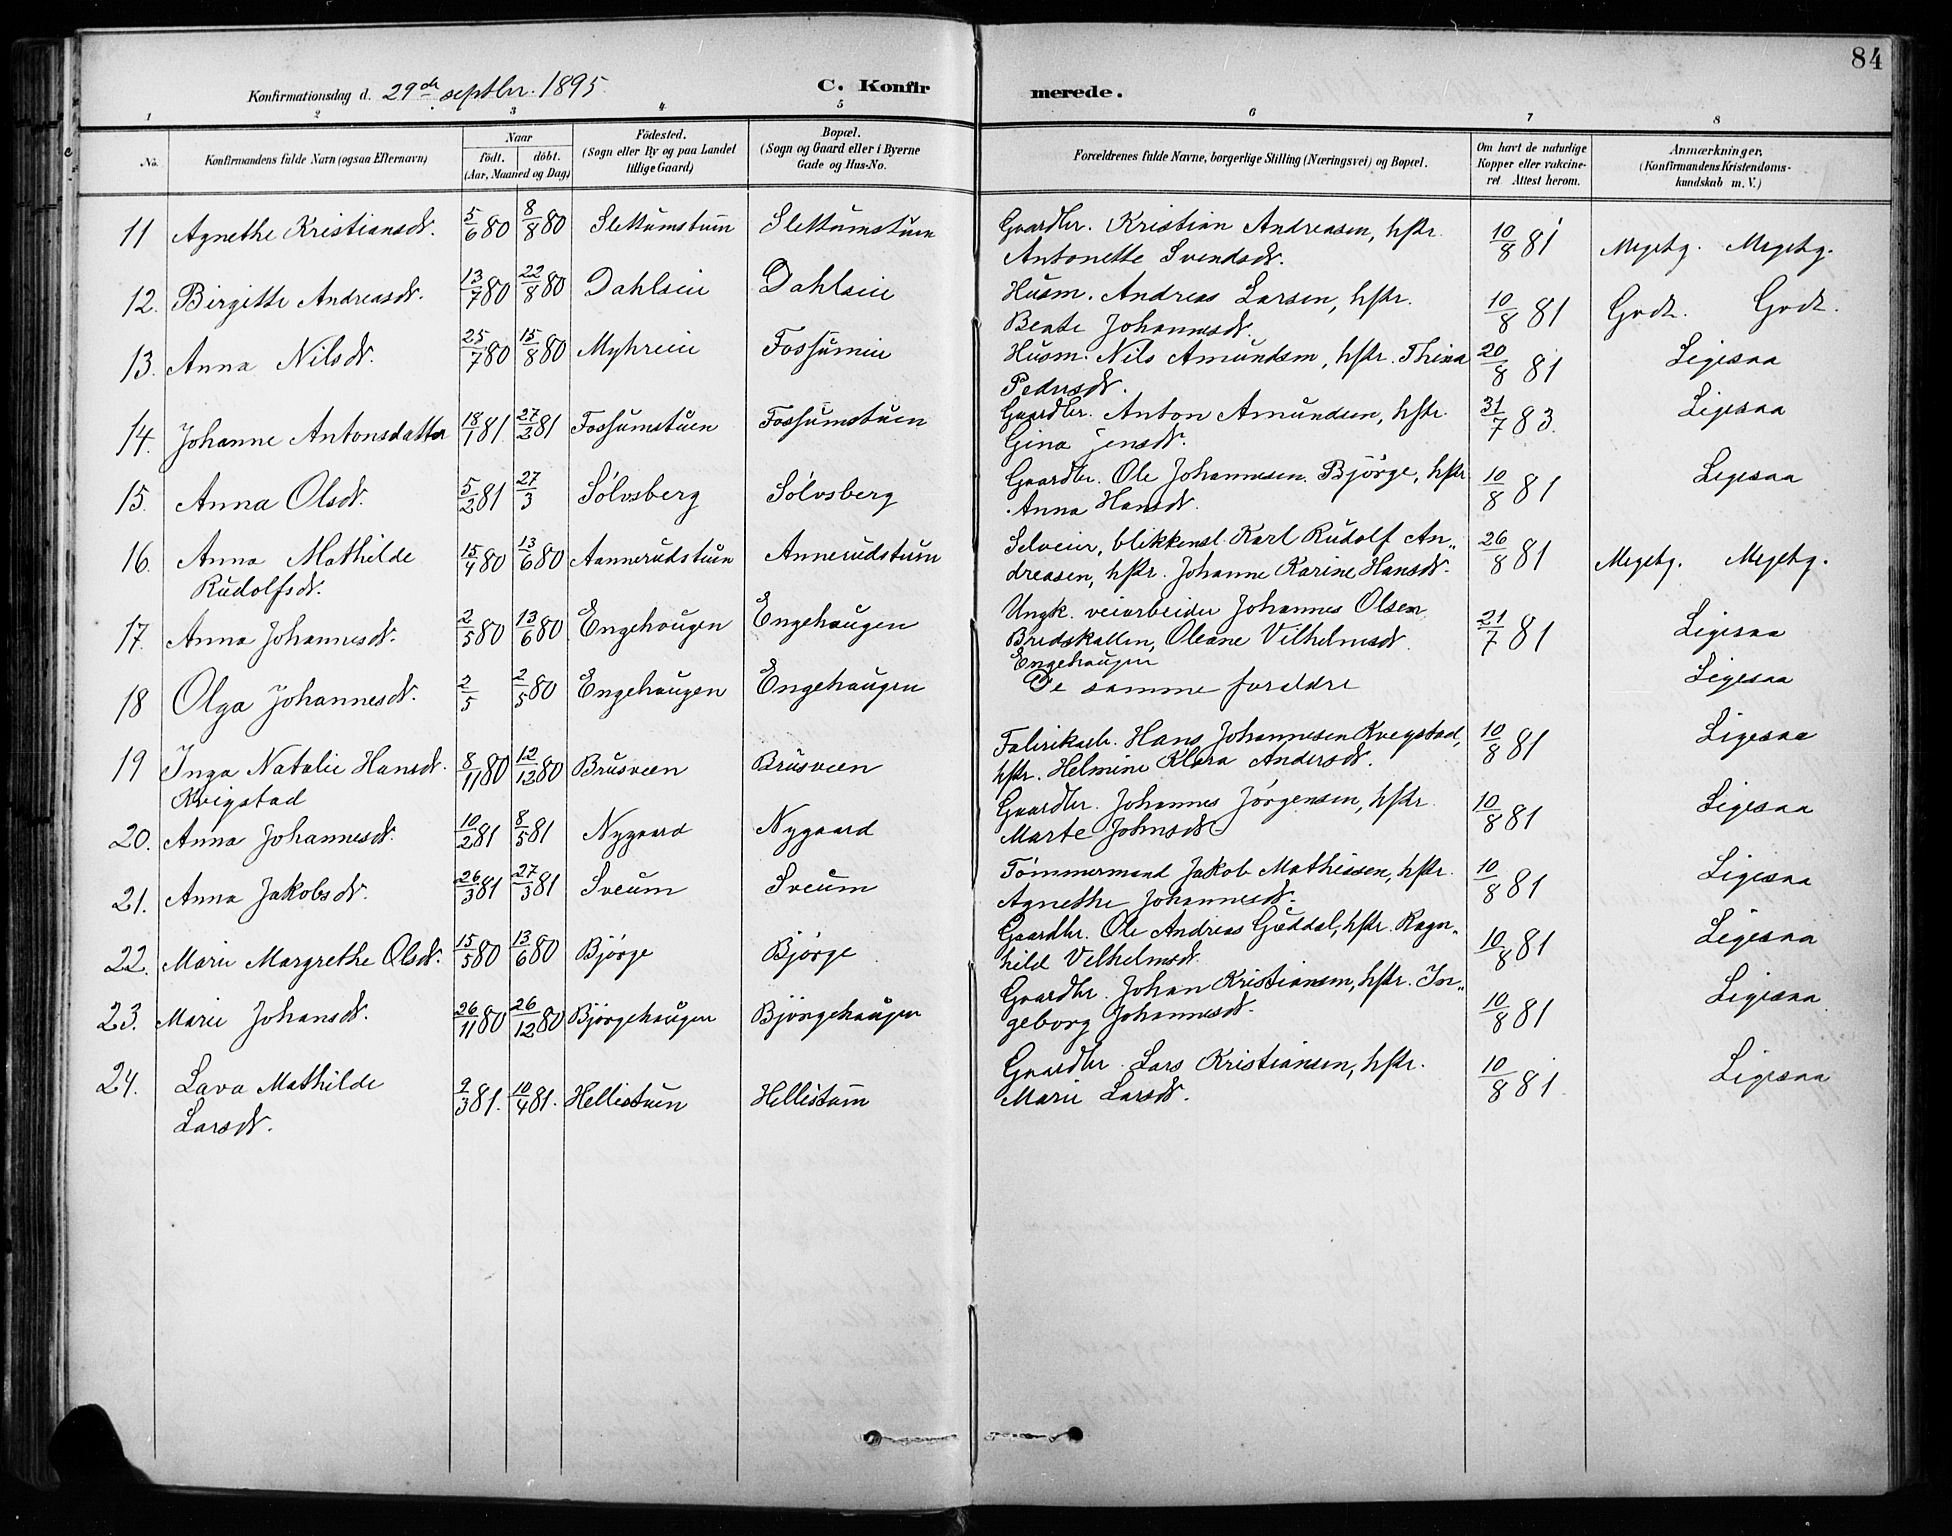 84
Konfirmationsdag d. 29de septbr. 1895.
C. Konfirmerede.
1 2 3 4 5 6 7 8
No.
Konfirmandens fulde Navn (ogsaa Efternavn)
Naar
födt. döbt.
(Aar, Maaned og Dag)
Födested.
(Sogn eller By og paa Landet
tillige Gaard)
Bopæl.
(Sogn og Gaard eller i Byerne
Gade og Hus-No.
Forældrenes fulde Navne, borgerlige Stilling (Næringsvei) og Bopæl.
Om havt de naturlige
Kopper eller vakcine-
ret Attest herom.
Anmærkninger,
(Konfirmandens Kristendoms-
kundskab m. V.)
11 Agnethe Kristiansdt. 5/6 80 8/8 80 Slettumstuen Slettumstuen Gaardbr. Kristian Andreasen, hstr. 10/8 81 Megetg. Megetg.
Antonette Svendsdt.
12. Birgitte Andreasdt. 13/7 80 22/8 80 Dahlseie Dahlseie Husm. Andreas Larsen, hstr. 10/8 81 Godt. Godt.
Beate Johannesdt.
13. Anna Nilsdt. 25/7 80 15/8 80 Myhreie Fossumeie Husm. Nils Amundsen, hstr. Thina 20/8 81 Ligesaa
Pedersdt.
14. Johanne Antonsdatter 18/1 81 27/2 81 Fossumstuen Fossumstuen Gaardbr. Anton Amundsen, hstr. 31/7 83. Ligesaa
Gina Jensdt.
15. Anna Olsdt. 5/2 81 27/3 Sölvsberg Sölvsberg Gaardbr. Ole Johannesen Björge, hstr. 10/8 81 Ligesaa
Anna Hansdt.
16. Anna Mathilde 15/4 80 13/6 80 Aannerudstuen Annerudstuen Selveier, blikkensl. Karl Rudolf An„ 26/8 81 Megetg. Megetg.
Rudolfsdt. dreasen, hstr. Johanne Karine Hansdt.
17. Anna Johannesdt. 2/5 80 13/6 80 Engehaugen Engehaugen Ungk. veiarbeider Johannes Olsen 21/7 81 Ligesaa
Bredskallen, Oleane Vilhelmsdt.
Engehaugen
18 Olga Johannesdt. 2/5 2/5 80 Engehaugen Engehaugen De samme forældre Ligesaa
19 Inga Natalie Hansdt. 8/11 80 12/12 80 Brusveen Brusveen Fabrikarb. Hans Johannesen Kvegstad, 10/8 81 Ligesaa
Kvigstad hstr. Helmine Klara Andersdt.
20. Anna Johannesdt. 10/2 81 8/5 81 Nygaard Nygaard Gaardbr. Johannes Jörgensen, hstr. 10/8 81 Ligesaa
Marte Johnsdt.
21. Anna Jakobsdt. 26/3 81 27/3 81 Sveum Sveum Tömmermand Jakob Mathiesen, hstr. 10/8 81 Ligesaa
Agnethe Johannesdt.
22. Marie Margrethe Olsdt. 15/5 80 13/6 80 Björge Björge Gaardbr. Ole Andreas Gæddal, hstr. Ragn„ 10/8 81 Ligesaa
hild Vilhelmsdt.
23. Marie Johansdt. 26/11 80 26/12 80 Björgehaugen Björngehaugen Gaardbr. Johan Kristiansen, hstr. In„ 10/8 81 Ligesaa
geborg Johannesdt.
24. Lava Mathilde 2/3 81. 10/4 81. Hellistuen Hellistuen Gaardbr. Lars Kristiansen, hstr. 10/8 81 Ligesaa
Larsdt. Marie Larsdt.